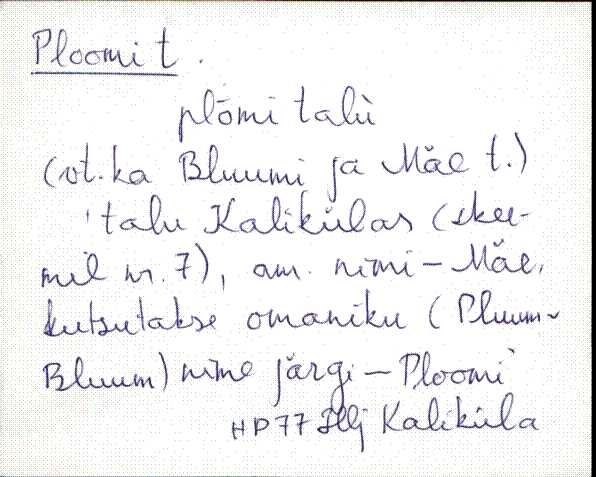 Ploomi t.
plōmi talù
(vt. ka Bluumi ja Mäe t.)
'talu Kalikülas (skee-
mil nr. 7), am. nimi – Mäe,
kutsutakse omaniku (Pluum~
Bluum) nime järgi – Ploomi'
HP 77 Hlj Kaliküla